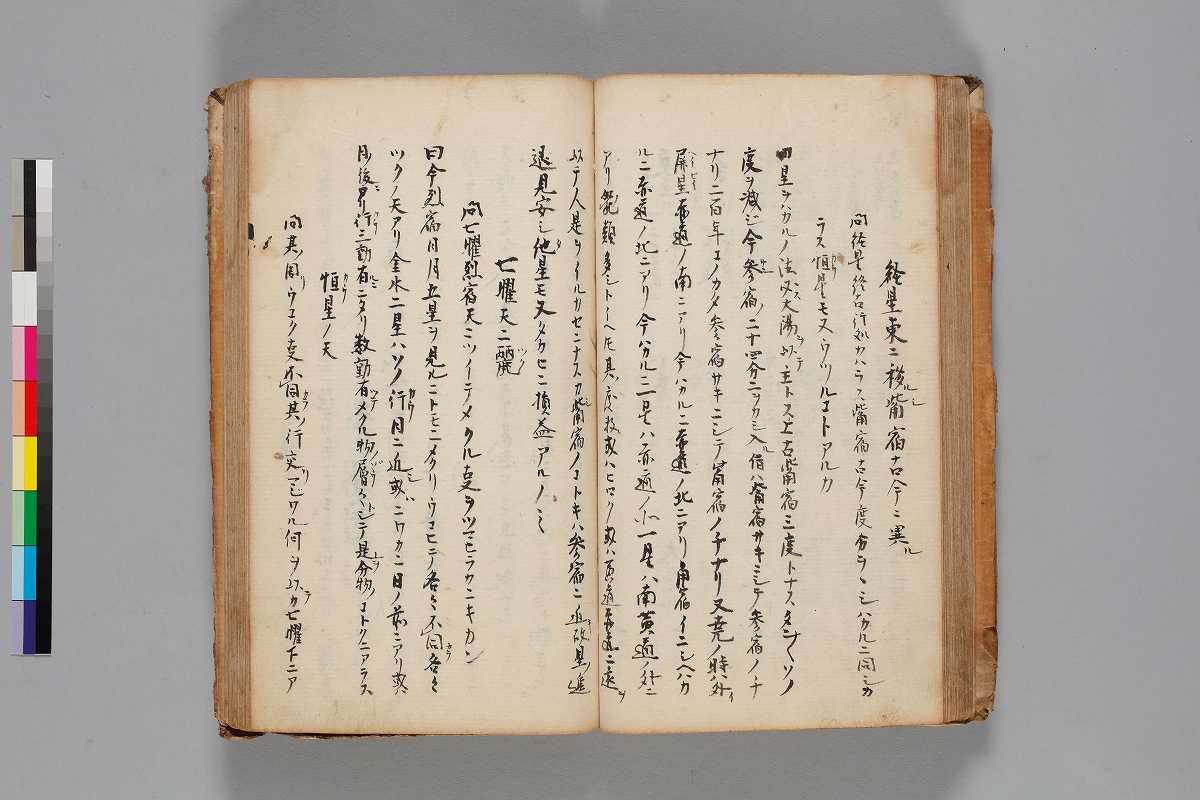 経星東ニ移觜宿古今ニ異ル
問経星終古行処カハラス觜宿古今度分ヲハカルニ同シカ
ラス恒星モ又ウツルコトアルカ
曰星ヲハカルノ法必太陽ヲ以テ主トス上古觜宿三度トナスタンソノ
度ヲ減シ今参宿二十四分ニツカシ入ル借ハ觜宿サキニシテ参宿ノチ
ナリ二百年コノカタ参宿サキニシテ觜宿ノチナリ又堯ノ時ハ外
屏星赤道ノ南ニアリ今ハカルニ赤道ノ北ニアリ角宿イニシヘハカ
ルニ赤道ノ北ニアリ今ハカルニ二星ハ赤道ノ 一星ハ南黄道ノ外ニ
アリ 類多シトイヘトモ其度数或ハヒロク或ハ黄道赤道ニ遠
以テ人是ヲイルカセニナスカ觜宿ノコトキハ参宿ニ近故星進
退見安シ他星モ又タカヒニ損益アルノミ
七曜天ニ麗ツク
問七曜烈宿天ニツイテメクル事ヲツマヒラカニキカン
曰今烈宿日月五星ヲ見ルニトモニメクリウコヒテ各々不同各々
ツクノ天アリ金水二星ハソノ行日ニ近或ハニワカニ日ノ前ニアリ或ハ
日後 行三動有ニタリ数動有テメクル物ノ層々トシテ是分物ノコトクニアラス
恒星ノ天
問其周リウコク事不同其ノ行交マシワル何ヲ以テカ七曜下ニア